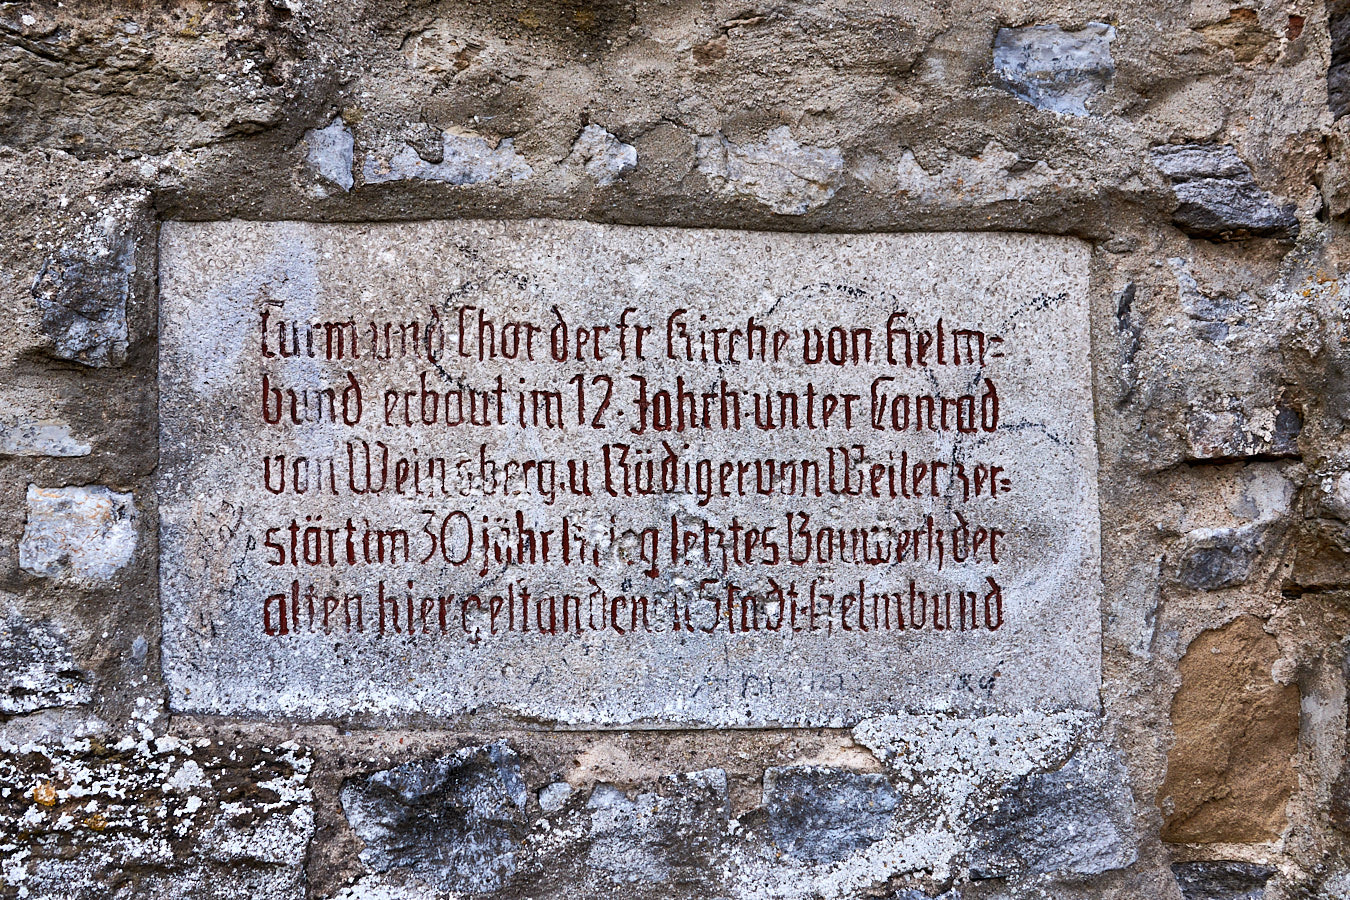 Turm und Chor der fr. Kirche von Helm=
bund erbaut im 12. Jahrh. unter Conrad
von Weinsberg u. Rüdiger von Weiler zer=
stört im 30 jähr Krieg letztes Bauwerk der
alten hier gestandenen Stadt Helmbund